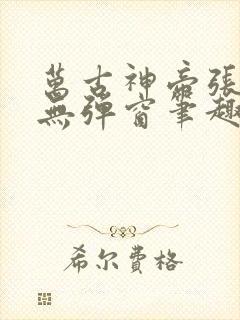 萬古神帝張
無彈窗筆趣
希尔费格